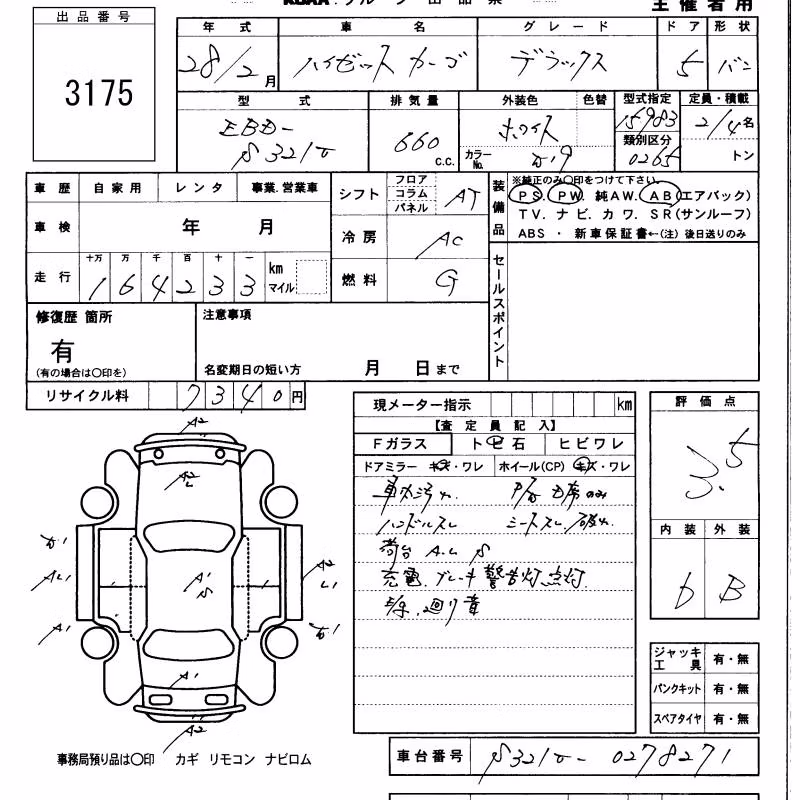 主催者用
出品番号
3175
年式 車名 グレード ドア 形状
28/2月 ハイゼットカーゴ デラックス 5 バン
型式 排気量 外装色 色替 型式指定 定員・積載
EBD-
S321V 660 c.c. ホワイト 15983 2/4名
類別区分
カラーNo. W9 0265 トン
車歴 自家用 レンタ 事業.営業車
シフト フロア コラム パネル AT
車検 年 月
冷房 AC
走行 十万 万 千 百 十 一
164233 km マイル
燃料 G
装備品 ※純正のみ〇印をつけて下さい。
PS. PW. 純AW. AB(エアバック)
TV. ナビ. カワ. SR(サンルーフ)
ABS ・ 新車保証書←(注) 後日送りのみ
セールスポイント
修復歴 箇所
有
(有の場合は〇印を)
注意事項
名変期日の短い方 月 日まで
リサイクル料 7340円
現メーター指示 km
【査定員記入】
Fガラス トビ石 ヒビワレ
ドアミラー キズ・ワレ ホイール(CP) キズ・ワレ
車内汚れ
ハンドルスレ シートスレ.破れ
荷台 A.U S
充電.ブレーキ警告灯点灯
評価点
3.5
内装 外装
D B
A2
A2
A1
S
A1
A1
A2
ジャッキ 工具 有・無
パンクキット 有・無
スペアタイヤ 有・無
事務局預り品は〇印 カギ リモコン ナビロム
車台番号 S321V-0278271